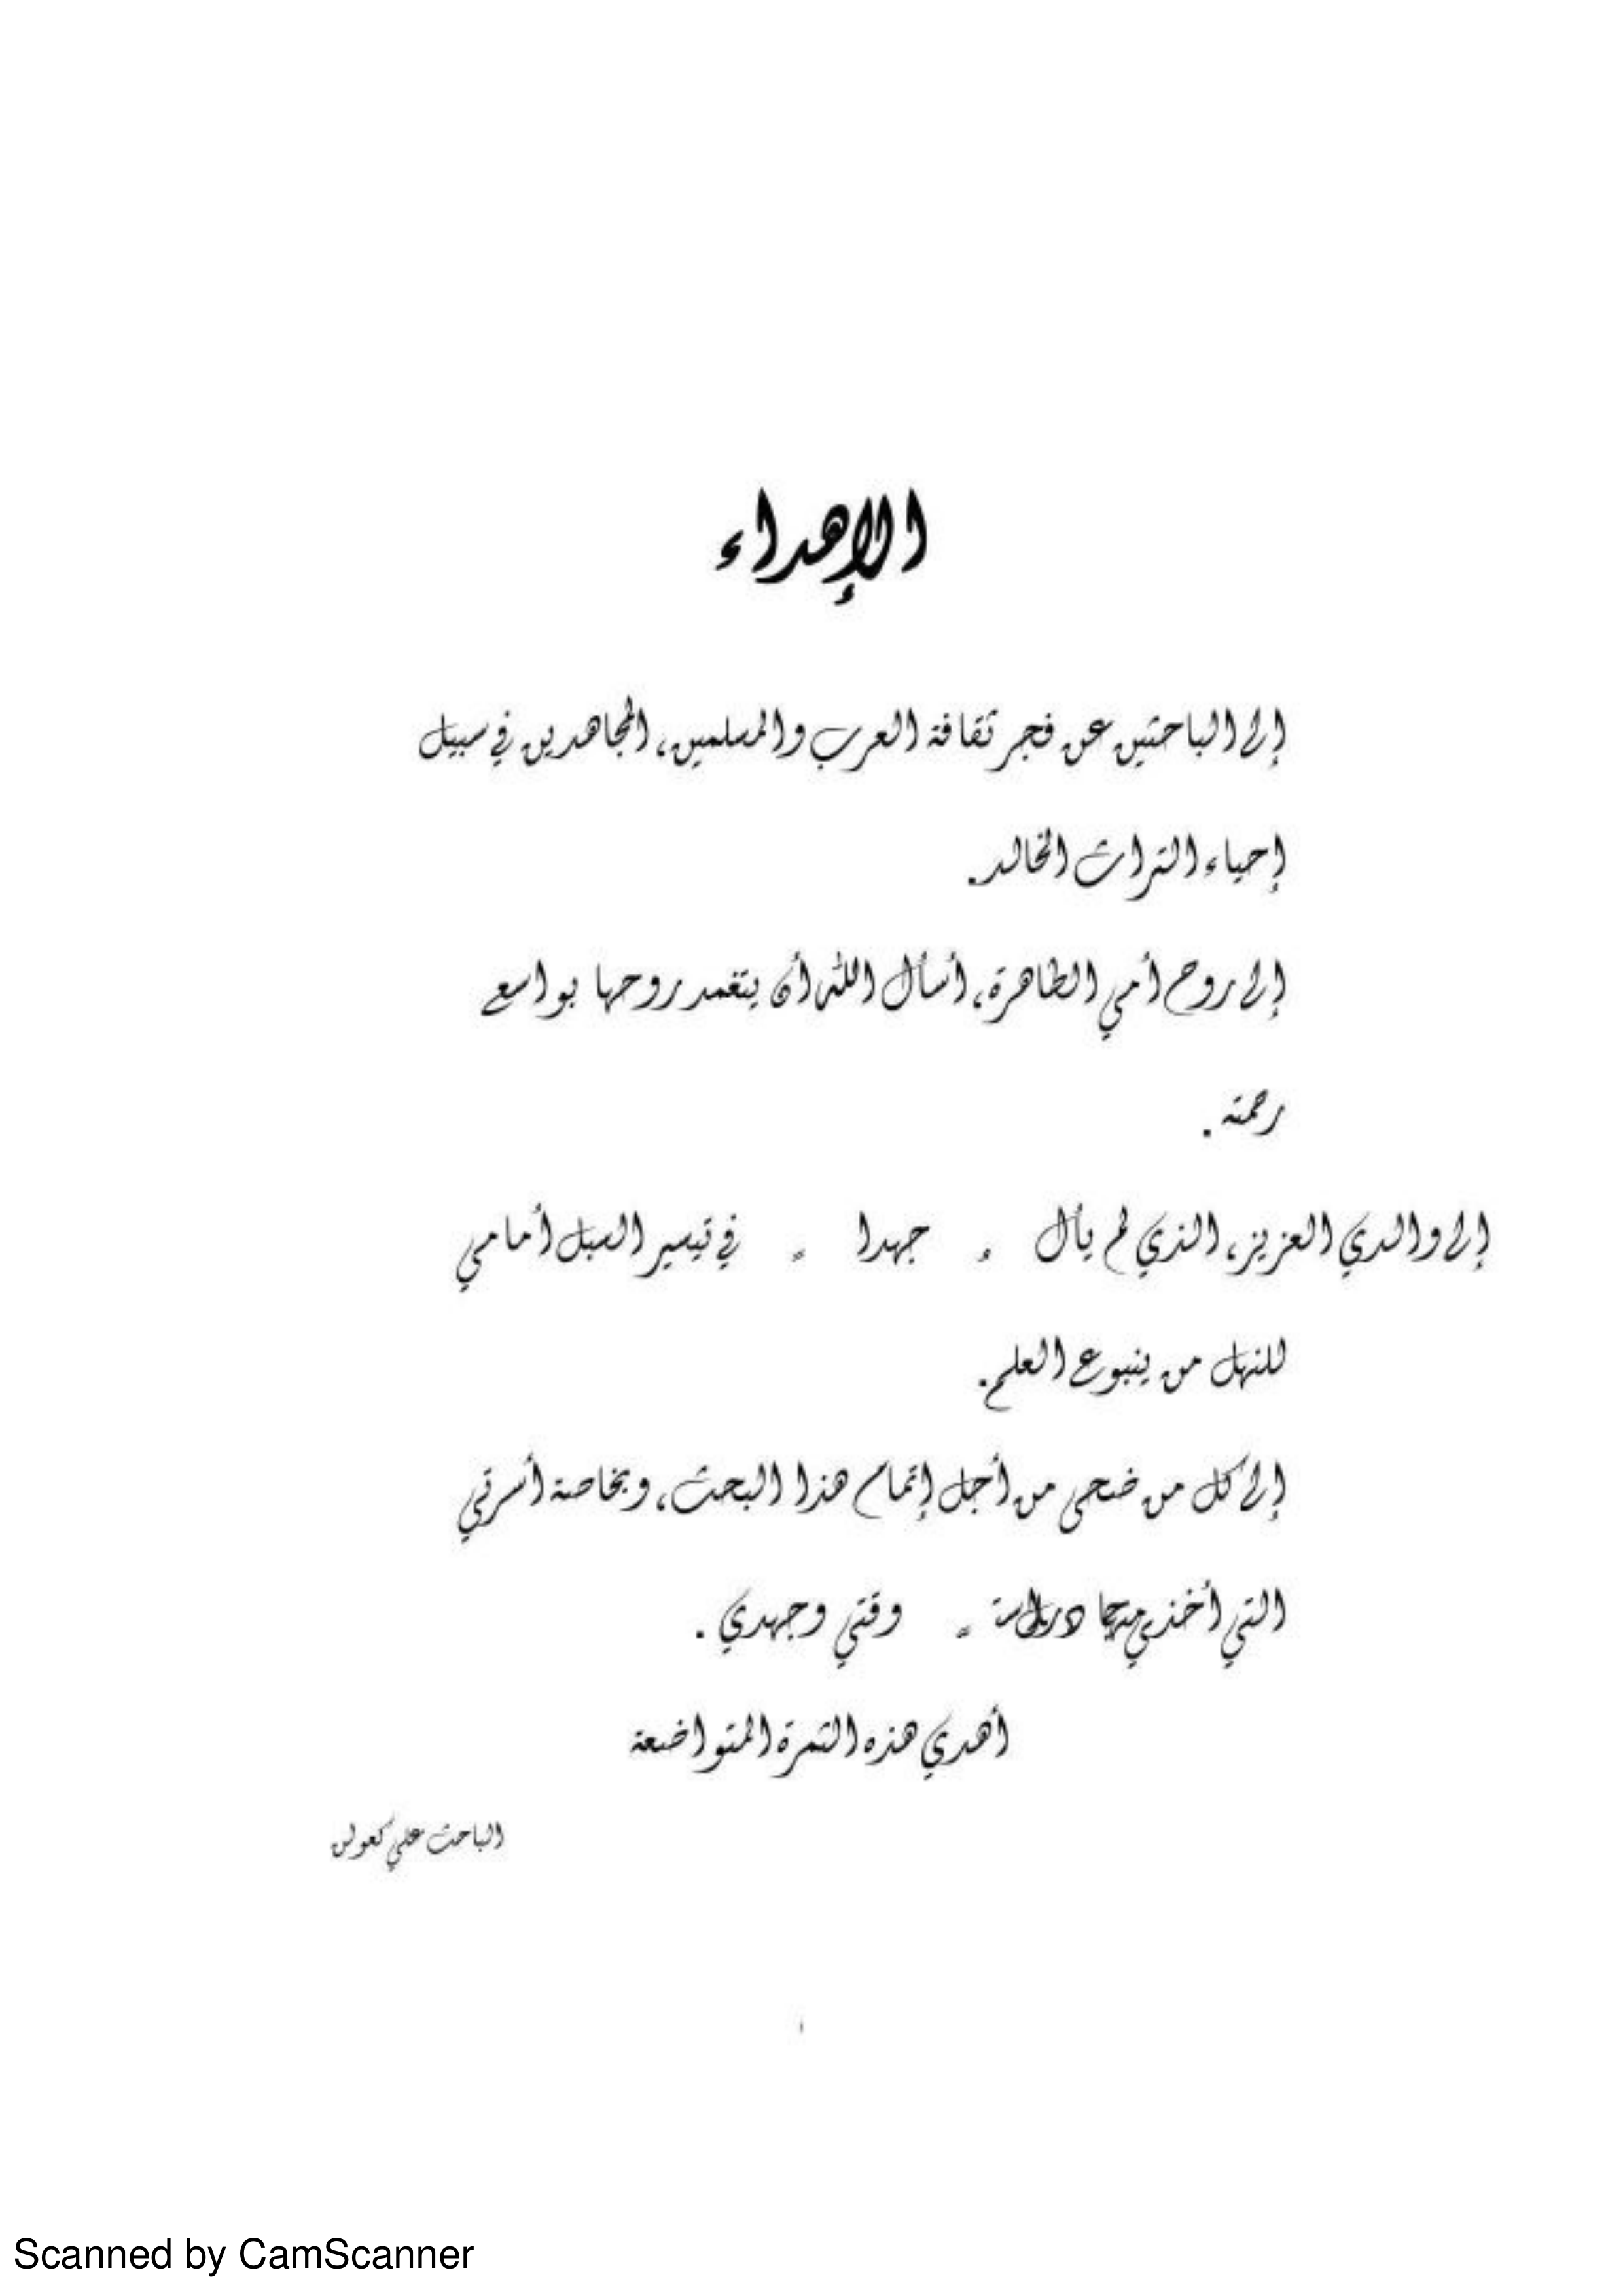 الإهداء
إلى الباحثين عن فجر ثقافة العرب والمسلمين، المجاهدين في سبيل
إحياء التراث الخالد.
إلى روح أمي الطاهرة، أسأل الله أن يتغمد روحها بواسع
رحمته .
إلى والدي العزيز، الذي لم يأل جهدا في تيسير السبل أمامي
للنهل من ينبوع العلم.
إلى كل من ضحى من أجل إتمام هذا البحث، وبخاصة أسرتي
التي أخذ وقتي وجهدي .
أهدي هذه الثمرة المتواضعة
الباحث علي كعولن
Scanned by CamScanner